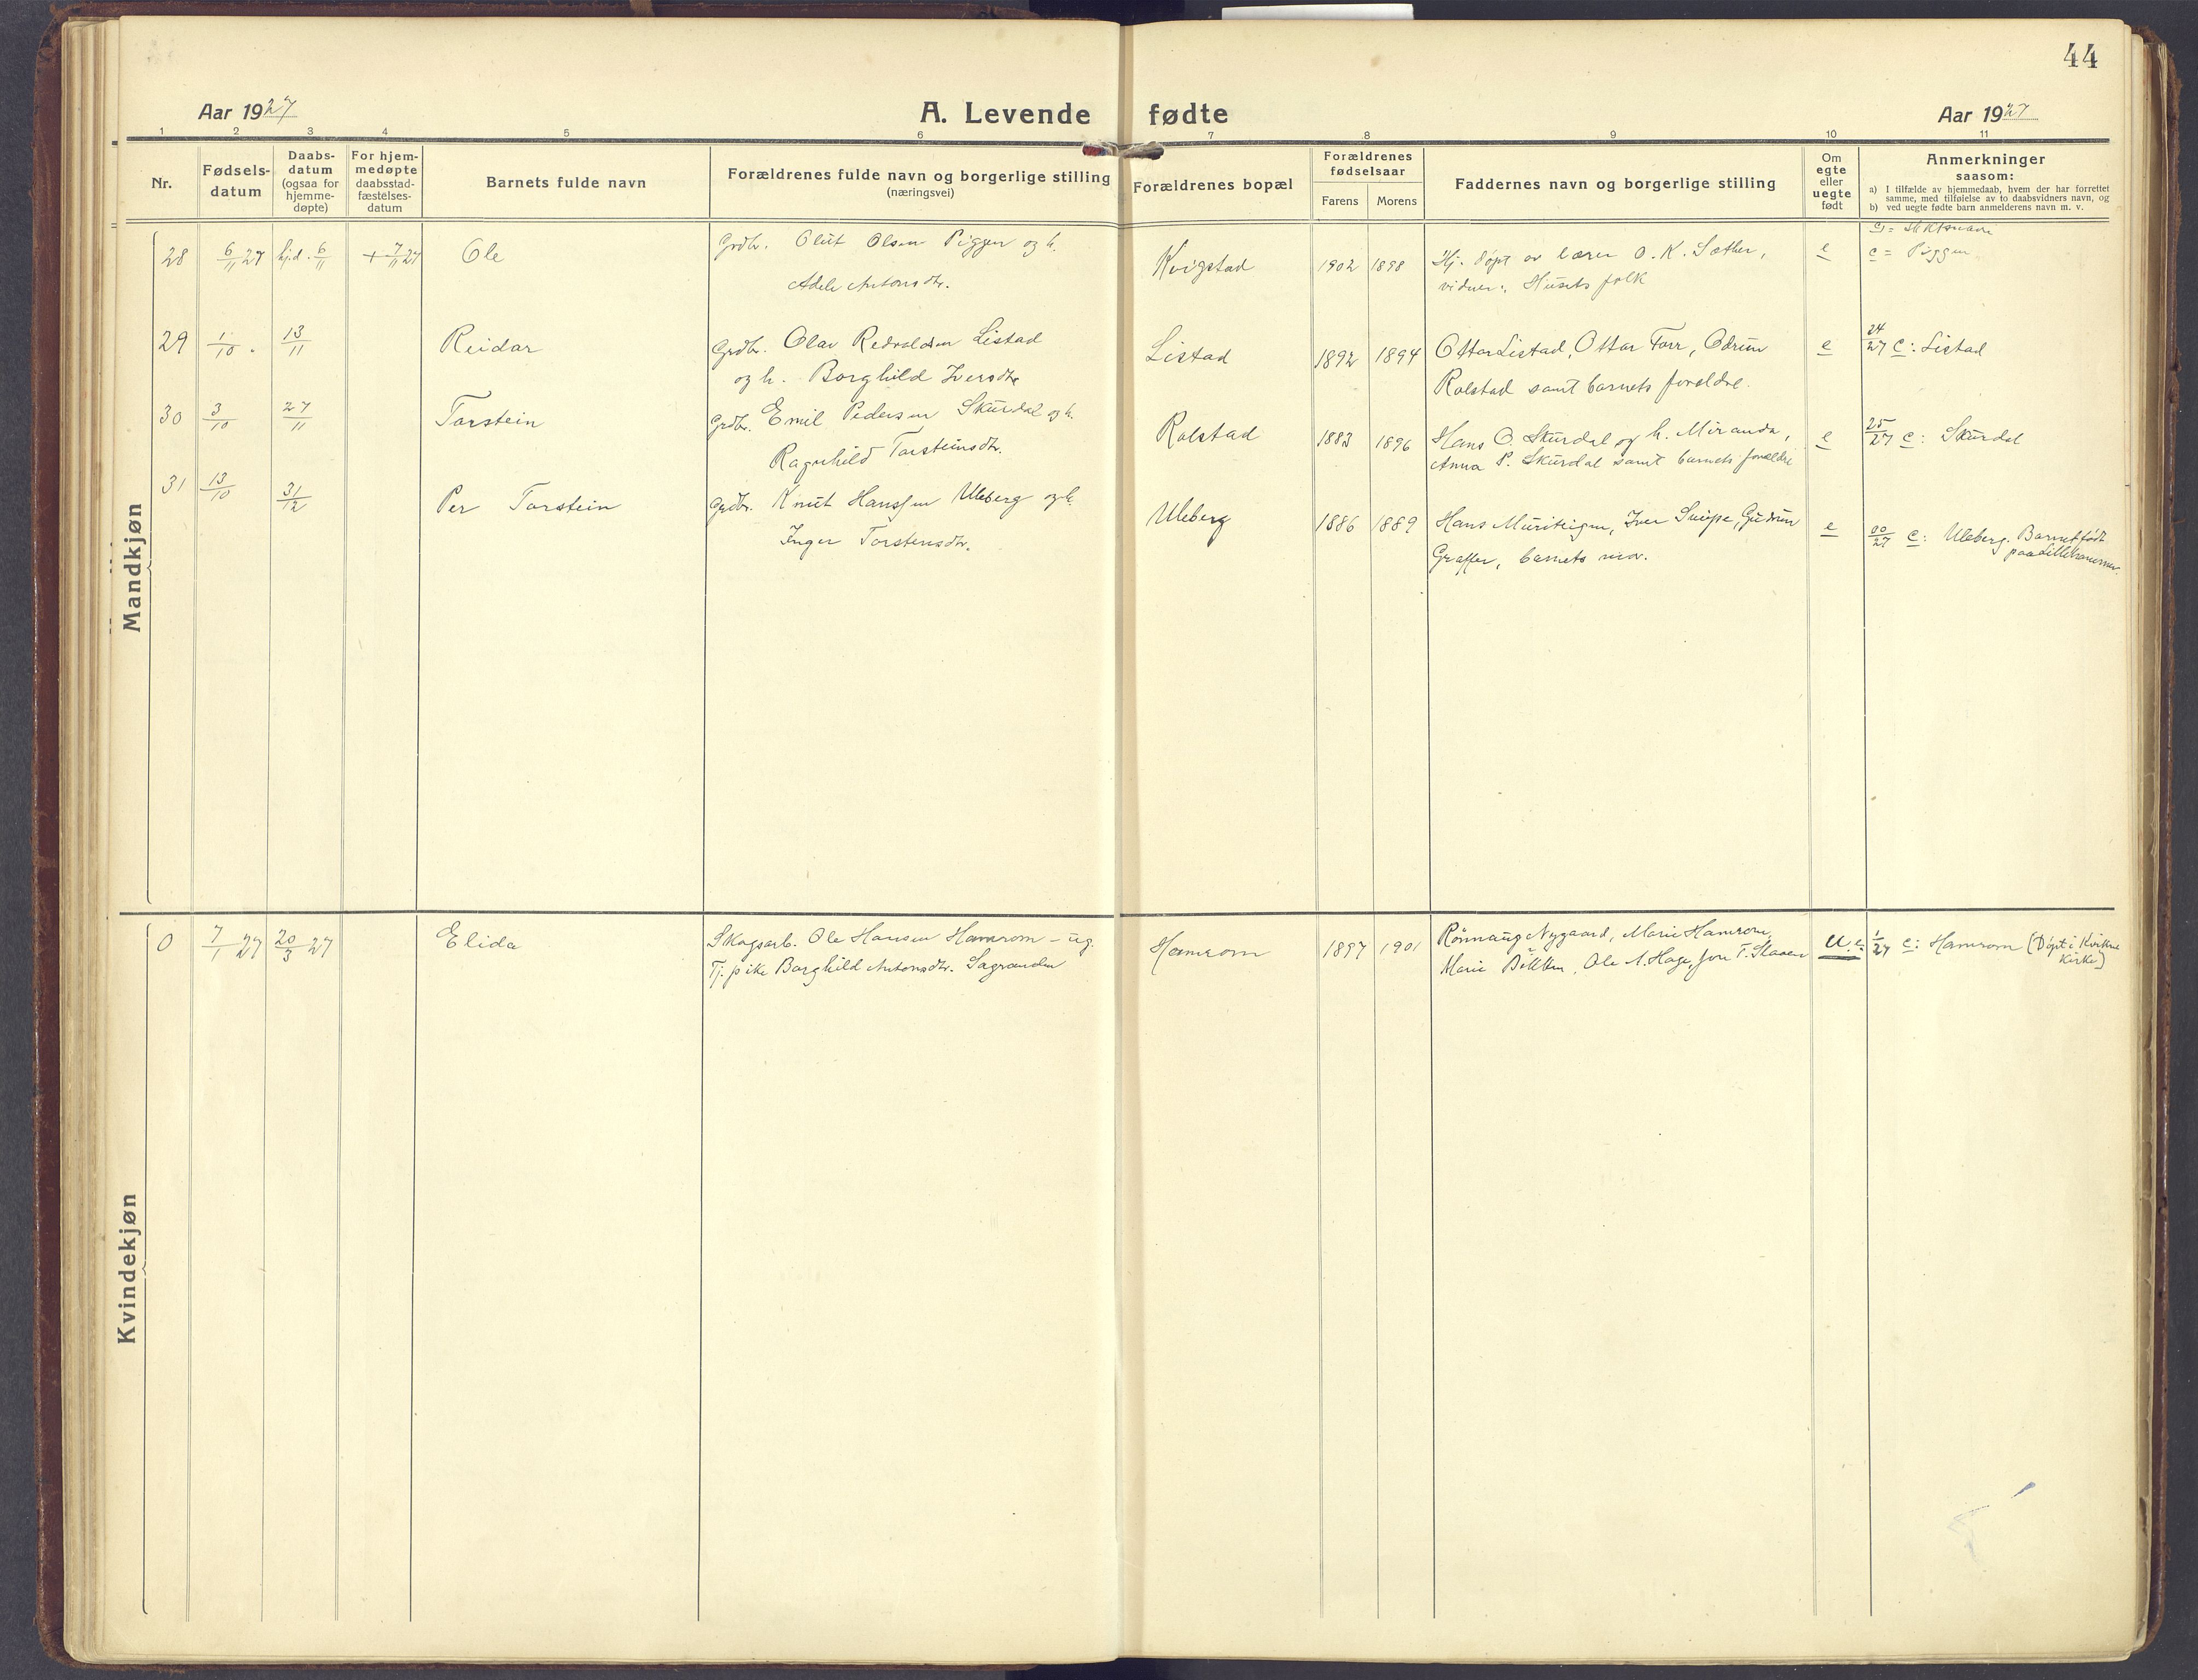 44
Aar 1927
A. Levende fødte
Aar 1927
1 2 3 4 5 6 7 8 9 10 11
Nr.
Fødsels-
datum
Daabs-
datum
(ogsaa for
hjemme-
døpte)
For hjem-
medøpte
daabsstad-
fæstelses-
datum
Barnets fulde navn
Forældrenes fulde navn og borgerlige stilling
(næringsvei)
Forældrenes bopæl
Forældrenes
fødselsaar
Farens Morens
Faddernes navn og borgerlige stilling
Om
egte
eller
uegte
født
Anmerkninger
saasom:
a) I tilfælde av hjemmedaab, hvem der har forrettet
samme, med tilføielse av to daabsvidners navn, og
b) ved uegte fødte barn anmelderens navn m. v.
Mandkjøn
c = Slektsnavn
28 6/11 27 hj.d. 6/11 + 7/11 27 Ole Grdbr. Olut Olsen Piggen og h. Kvigstad 1902 1898 Hj. døpt av lærer O. K. Sæther, e c = Piggen
Adele Antonsdtr. vidner: Husets folk
29 1/10. 13/11 Reidar Grdbr. Olav Redvaldsen Listad Listad 1892 1894 Ottar Listad, Ottar Forr, Odrun e 24/27 c: Listad
og h. Borghild Iversdtr. Rolstad samt barnets foreldre.
30 3/10 27/11 Torstein Grdbr. Emil Pedersen Skurdal og h. Rolstad 1883 1896 Hans O. Skurdal og h. Miranda, e 25/27 c: Skurdal
Ragnhild Torsteinsdtr. Anna P. Skurdal samt barnets foreldre
31 13/10 31/12 Per Torstein Grdbr. Knut Hanssen Uleberg og h. Uleberg 1886 1889 Hans Muriteigen, Iver Sveipe, Gudrun e 00/27 c: Uleberg. Barnet født
Inger Torstensdtr. Graffer, barnets mor. paa Lillehammer.
Kvindekjøn
0 7/1 27 20/3 27 Elida Skogsarb. Ole Hansen Hamrom - ug. Hamrom 1897 1901 Rönnaug Nygaard, Marie Hamrom, U.e. 1/27 c: Hamrom (Døpt i Kvikne
Tj. pike Borghild Antonsdtr. Sagranden Marie Bükken, Ole N. Hage, Jon T. Slaaen Kirke)